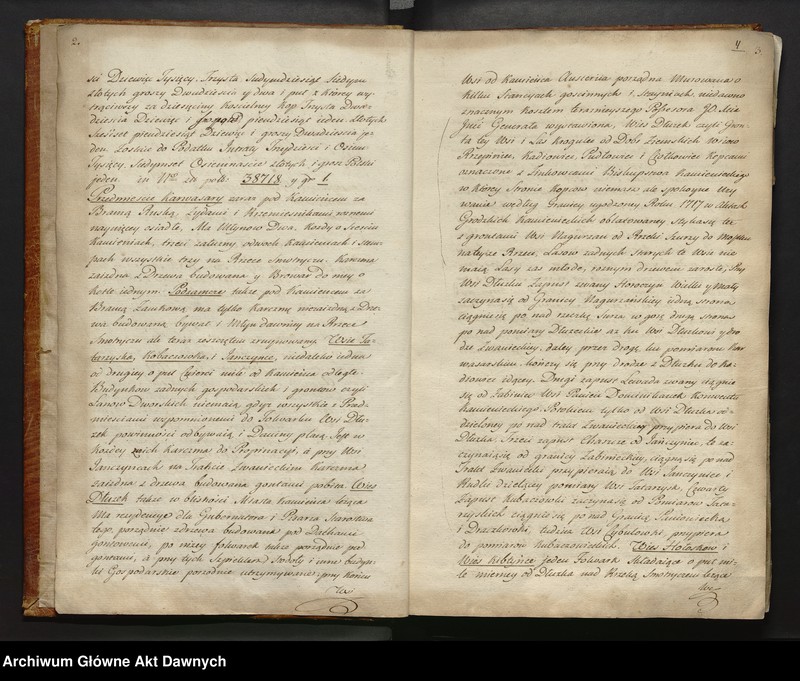 2.
sci Dziewięć Tysięcy Trzysta Siedymdziesiąt Siedym
złotych groszy Dwadzieścia y dwa i puł z ktorey wy-
trąciwszy za dziesięciny kościelney kop Trzysta Dwa-
dzieścia Dziewięć i pięćdziesiąt ieden złotych
Sześćset piędziesiąt Dziewięć i groszy Dwadzieścia je-
den Zostaie do Podatku Intraty Trzydzieści i Osiem
Tysięcy Siedymset Osiemnaście złotych i grosz Polski
jeden in Nro zł: pols: 38718. y gr 1.
Przedmieście Karwasary zaraz pod Kamieńcem za
Bramą Ruską Zydami i Rzemieślnikami
naywięcy osiadłe. Ma Młynow Dwa, Każdy o Trzech
Kamieniach, trzeci zaś o dwoch Kamieniach i
pach wszystkie trzy na Rzece Smotryczu. Karczma
zaiezdna z Drzewa budowana y Browar do niey o
kotle iednym. Podzamcze także pod Kamieńcem za
Bramą Zamkową ma tylko Karczmę niezaiezdną z Drze-
wa budowaną bywał i Młyn dawniey na Rzece
Smotryczu ale teraz ze szczętem zruynowany. Wsie Ta-
taryska, Kobaczowka, i Janczynce, niedaleko iedna
od drugiey o puł ćwierci mile od Kamieńca odległe.
Budynkow żadnych gospodarskich i gruntow czyli
Łanow Dworskich niemaią gdyż wszystkie z Przed-
mieściami wspomnionemi do Folwarku Wsi Dłu-
żek powinności odbywaią i Daniny płacą. Jest w
każdey z nich Karczma do Propinacyi, a przy Wsi
Janczyncach na Trakcie Zwanieckim Karczma
zaiezdna z drzewa budowana gontami pobita. Wieś
Dłużek także w bliskości Miasta Kamieńca leząca
Ma rezydencye dla Gubernatora i Pisarza Starostwa
tego, porządnie z drzewa budowane pod Dachami
Gontowemi, po niżey folwarek także porządnie pod
gontami, a przy tych Szpichlerz Stodoły i inne budyn-
ki Gospodarskie porządnie utrzymywane, przy końcu
Wsi
4
3.
Wsi od Kamieńca Austeria porządna Murowana o
kilku Stancyach gościnnych i Stayniach, niedawno
znacznym kosztem teraznieyszego Possesora JO. Xcia
Jmci Generała wystawiona, Wieś Dłużek czyli Grun-
ta tey Wsi i Las kraniec od Dobr Ziemskich
Kadiowiec, Pudłowiec i Czołkowiec Kopcami
oznaczone z Biskupstwa Kamienieckiego
w ktorey Stronie Kopcow niemasz ale spokoyne Uży-
wanie według Granicy ugodzoney Roku 1717 w Aktach
Grodzkich Kamienieckich oblatowaney stykaią też
z gruntami Wsi Nagorzan od Rzeki Surży do Mostku
na teyże Rzece, Lasow żadnych starych te Wsie nie
maią Lasy zaś młode, rożnym drzewem zarosłe, Przy
Wsi Dłużku Zapust zwany Horoczyn Wielki y Mały
zaczyna się od Granicy Nagorzańskiey iedną stroną
ciągnie się po nad rzeczką Surżą w gorę drugą stroną
po nad pomiary Dłuzeckie aż ku Wsi Dłuzkowi y dro-
dze Zwanieckiey daley przez drogę ku pomiarom Kar-
wasarskim kończy się przy drodze z Dłuzka do Ka-
dłowiec idącey. Drugi zapust Lewada zwany ciągnie
się od Zabiniec Wsi Panien Dominikanek Konwentu
Kamienieckiego. Potokiem tylko od Wsi Dłuzka od-
dzieloney po nad Trakt Zwaniecki przypiera do Wsi
Dłuzka. Trzeci zapust Charasze od Janczyniec, te za-
czynaią się od granicy Zabinieckiey, ciągną się po nad
Trakt Zwaniecki przypieraią do Wsi Janczyniec i
Rudki dzielącey pomiary Wsi Tataryszk, Czwarty
Zapust Kubaczowski zaczyna się od Pomiarow Tata-
ryskich ciągnie się po nad Granicę Paniowiecką
i Draczkowką, tudzież Wsi Cybulowki przypiera
do pomiarow Kubaczowieckich. Wieś Hołoskow i
Wieś Kubzince jeden Folwark Składaiące o puł mi-
le niemiey od Dłuzka nad Rzeką Smotryczem leżące
We
Archiwum Główne Akt Dawnych